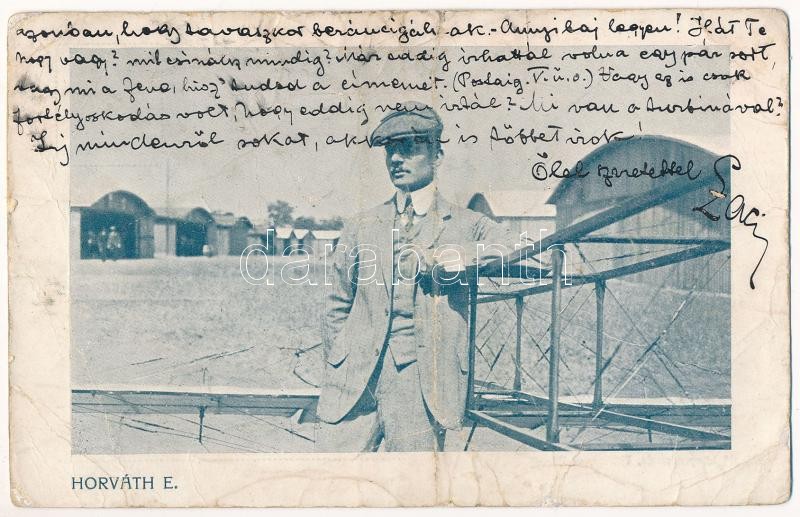 azonban, hogy tavaszkor beráncigáljak. - Annyi baj legyen! Hát Te
hogy vagy? mit csinálsz mindig? Már eddig írhattál volna egy pár sort,
vagy mi a fene, hisz' tudod a címemet. (Postaig. T. ü. o.) Vagy ez is csak
fortélyoskodás volt, hogy eddig nem írtál? Mi van a turbinával?
Írj mindenről sokat, akkor én is többet írok!
Ölel szeretettel
Laci
darabanth.com
HORVÁTH E.